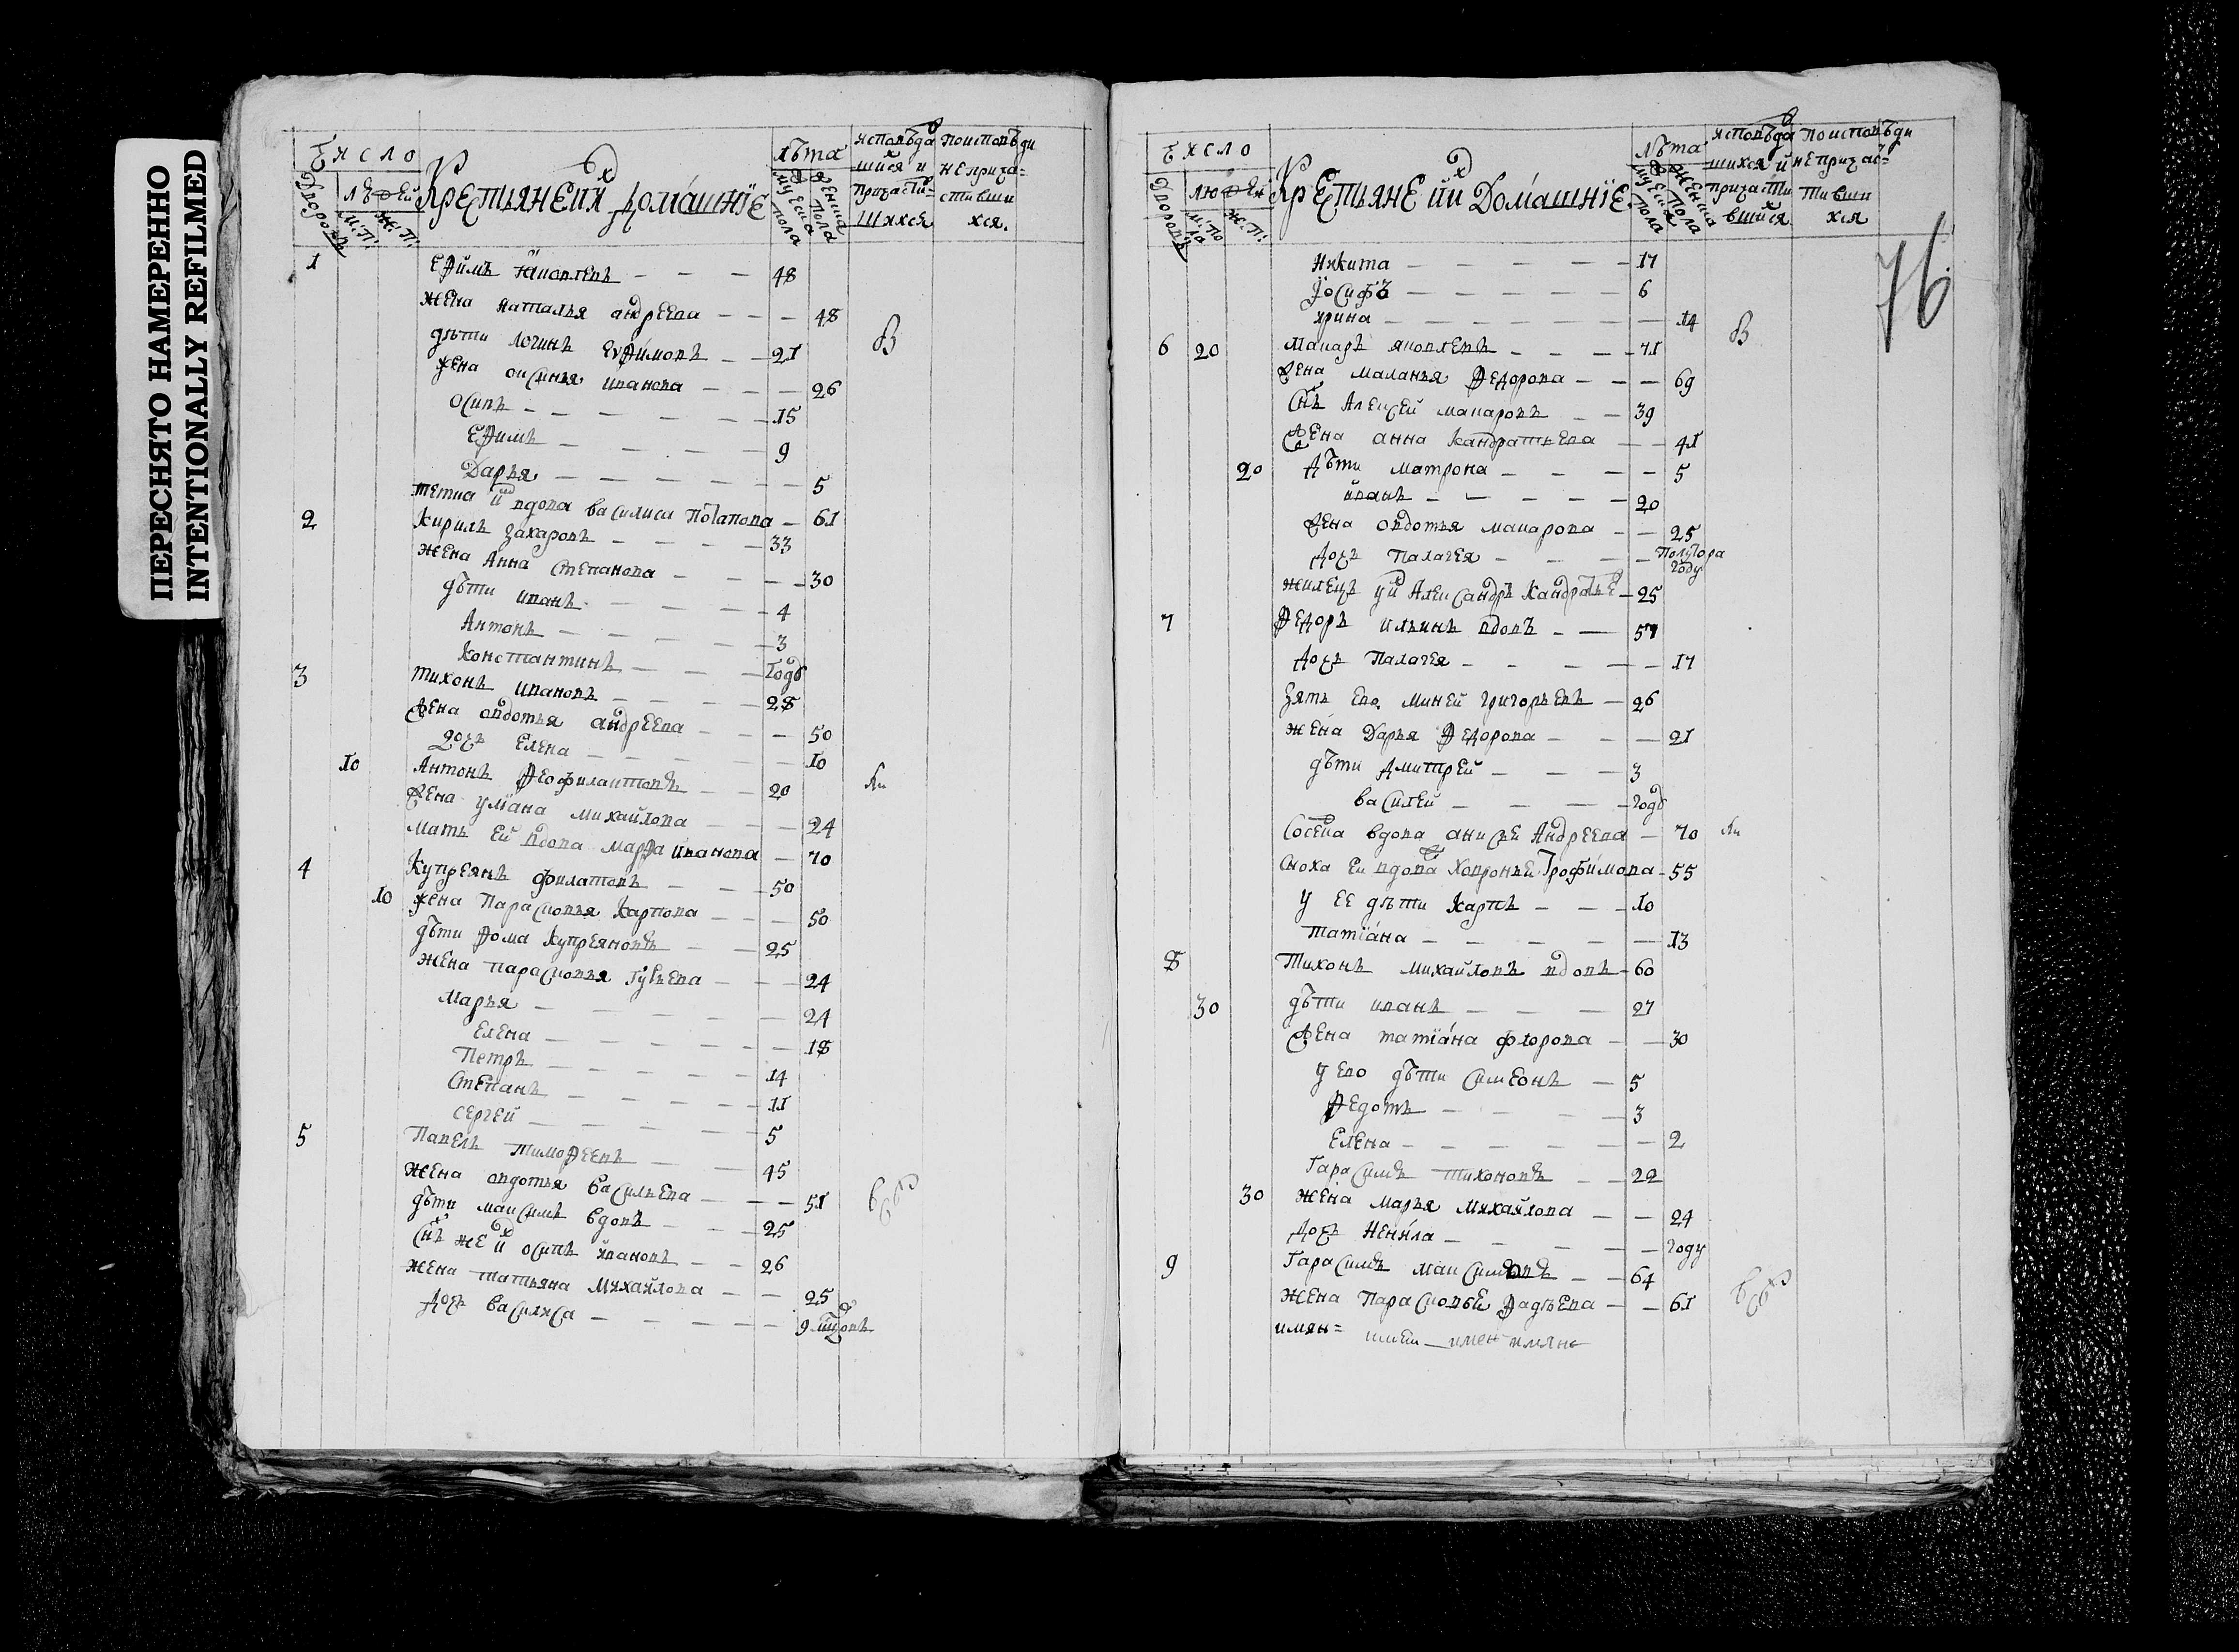 ПЕРЕСНЯТО НАМЕРЕННО
INTENTIONALLY REFILMED
Число
Дворовъ
Людей
м: п:
ж: п:
Крестьяне и их домашнїе
лѣта
мужеска пола
женска пола
исповѣда
шихся и
причасти
вшихся
по исповѣди
не прича=
стивши
хся.
1 Ефимъ яковлевъ — — — 48
жена наталья андреева — — — 48
дѣти логинъ Ефимовъ — — 21
В
жена оксинья иванова — — — 26
осипъ — — — — — 15
Ефимъ — — — — — 9
Дарья — — — — — 5
тетка их вдова василиса Потапова — 61
2 Кирилъ захаровъ — — — — 33
жена Анна степанова — — — — 30
дѣти иванъ — — — — 4
Антонъ — — — — 3
Константинъ — — — годъ
3 тихонъ ивановъ — — — — 28
жена овдотья андреева — — — 50
дочь Елена — — — — — 10
10 Антонъ Феофилактовъ — — 20
жена улїана михайлова — — — 24
мать ей вдова марфа иванова — 70
4 Купреянъ филатовъ — — — 50
10 жена Парасковья Карпова — — — 50
дѣти Фома Купреяновъ — — 25
жена парасковья гурьева — — — 24
Марья — — — — — — 24
Елена — — — — — — 18
Петръ — — — — — 14
Степанъ — — — — — 11
сергей — — — — — 5
5 Павелъ тимофеевъ — — — 45
жена овдотья васильева — — — 51
дѣти максимъ вдовъ — — 25
сн҃ъ же их осипъ ивановъ — — 26
жена татьяна михайлова — — 25
дочь василиса — — — — — 9
Число
Дворовъ
людей
м: пола
ж: п:
Крестьяне и их Домашнїе
лѣта
мужеска пола
женска пола
исповѣда
шихся и
причасти
вшихся
по исповѣди
не причас=
тивши
хся
76
никита — — — — — 17
їосифъ — — — — — 6
ирина — — — — — — 14
6 20 Макаръ яковлевъ — — — 71
В
жена маланья Федорова — — — 69
сн҃ъ Алексей макаровъ — — 39
жена анна кандратьева — — 41
20 дѣти матрона — — — — 5
иванъ — — — — — 20
жена овдотья макарова — — 25
дочь палагея — — — — полтора году
жилецъ их Александръ Кандратье — 25
7 Федоръ ильинъ вдовъ — — 57
дочь Палагея — — — — — 17
зять ево миней григорьевъ — 26
жена Дарья Федорова — — — 21
дѣти дмитрей — — — 3
василей — — — — годъ
соседка вдова Андреева — 70
сноха ей вдова Трофимова — 55
у ее дѣти карпъ — — — 10
татїана — — — — — 13
8 Тихонъ михайловъ вдовъ — 60
30 дѣти иванъ — — — 27
жена татїана флорова — — 30
у ево дѣти симеонъ — 5
Федотъ — — — — 3
Елена — — — — — — 2
Гарасимъ тихоновъ — — 22
30 жена марья михайлова — — 24
дочь Ненила — — — — — году
9 Гарасимъ максимовъ — — 64
жена парасковьи Фадѣева — — 61
имян=